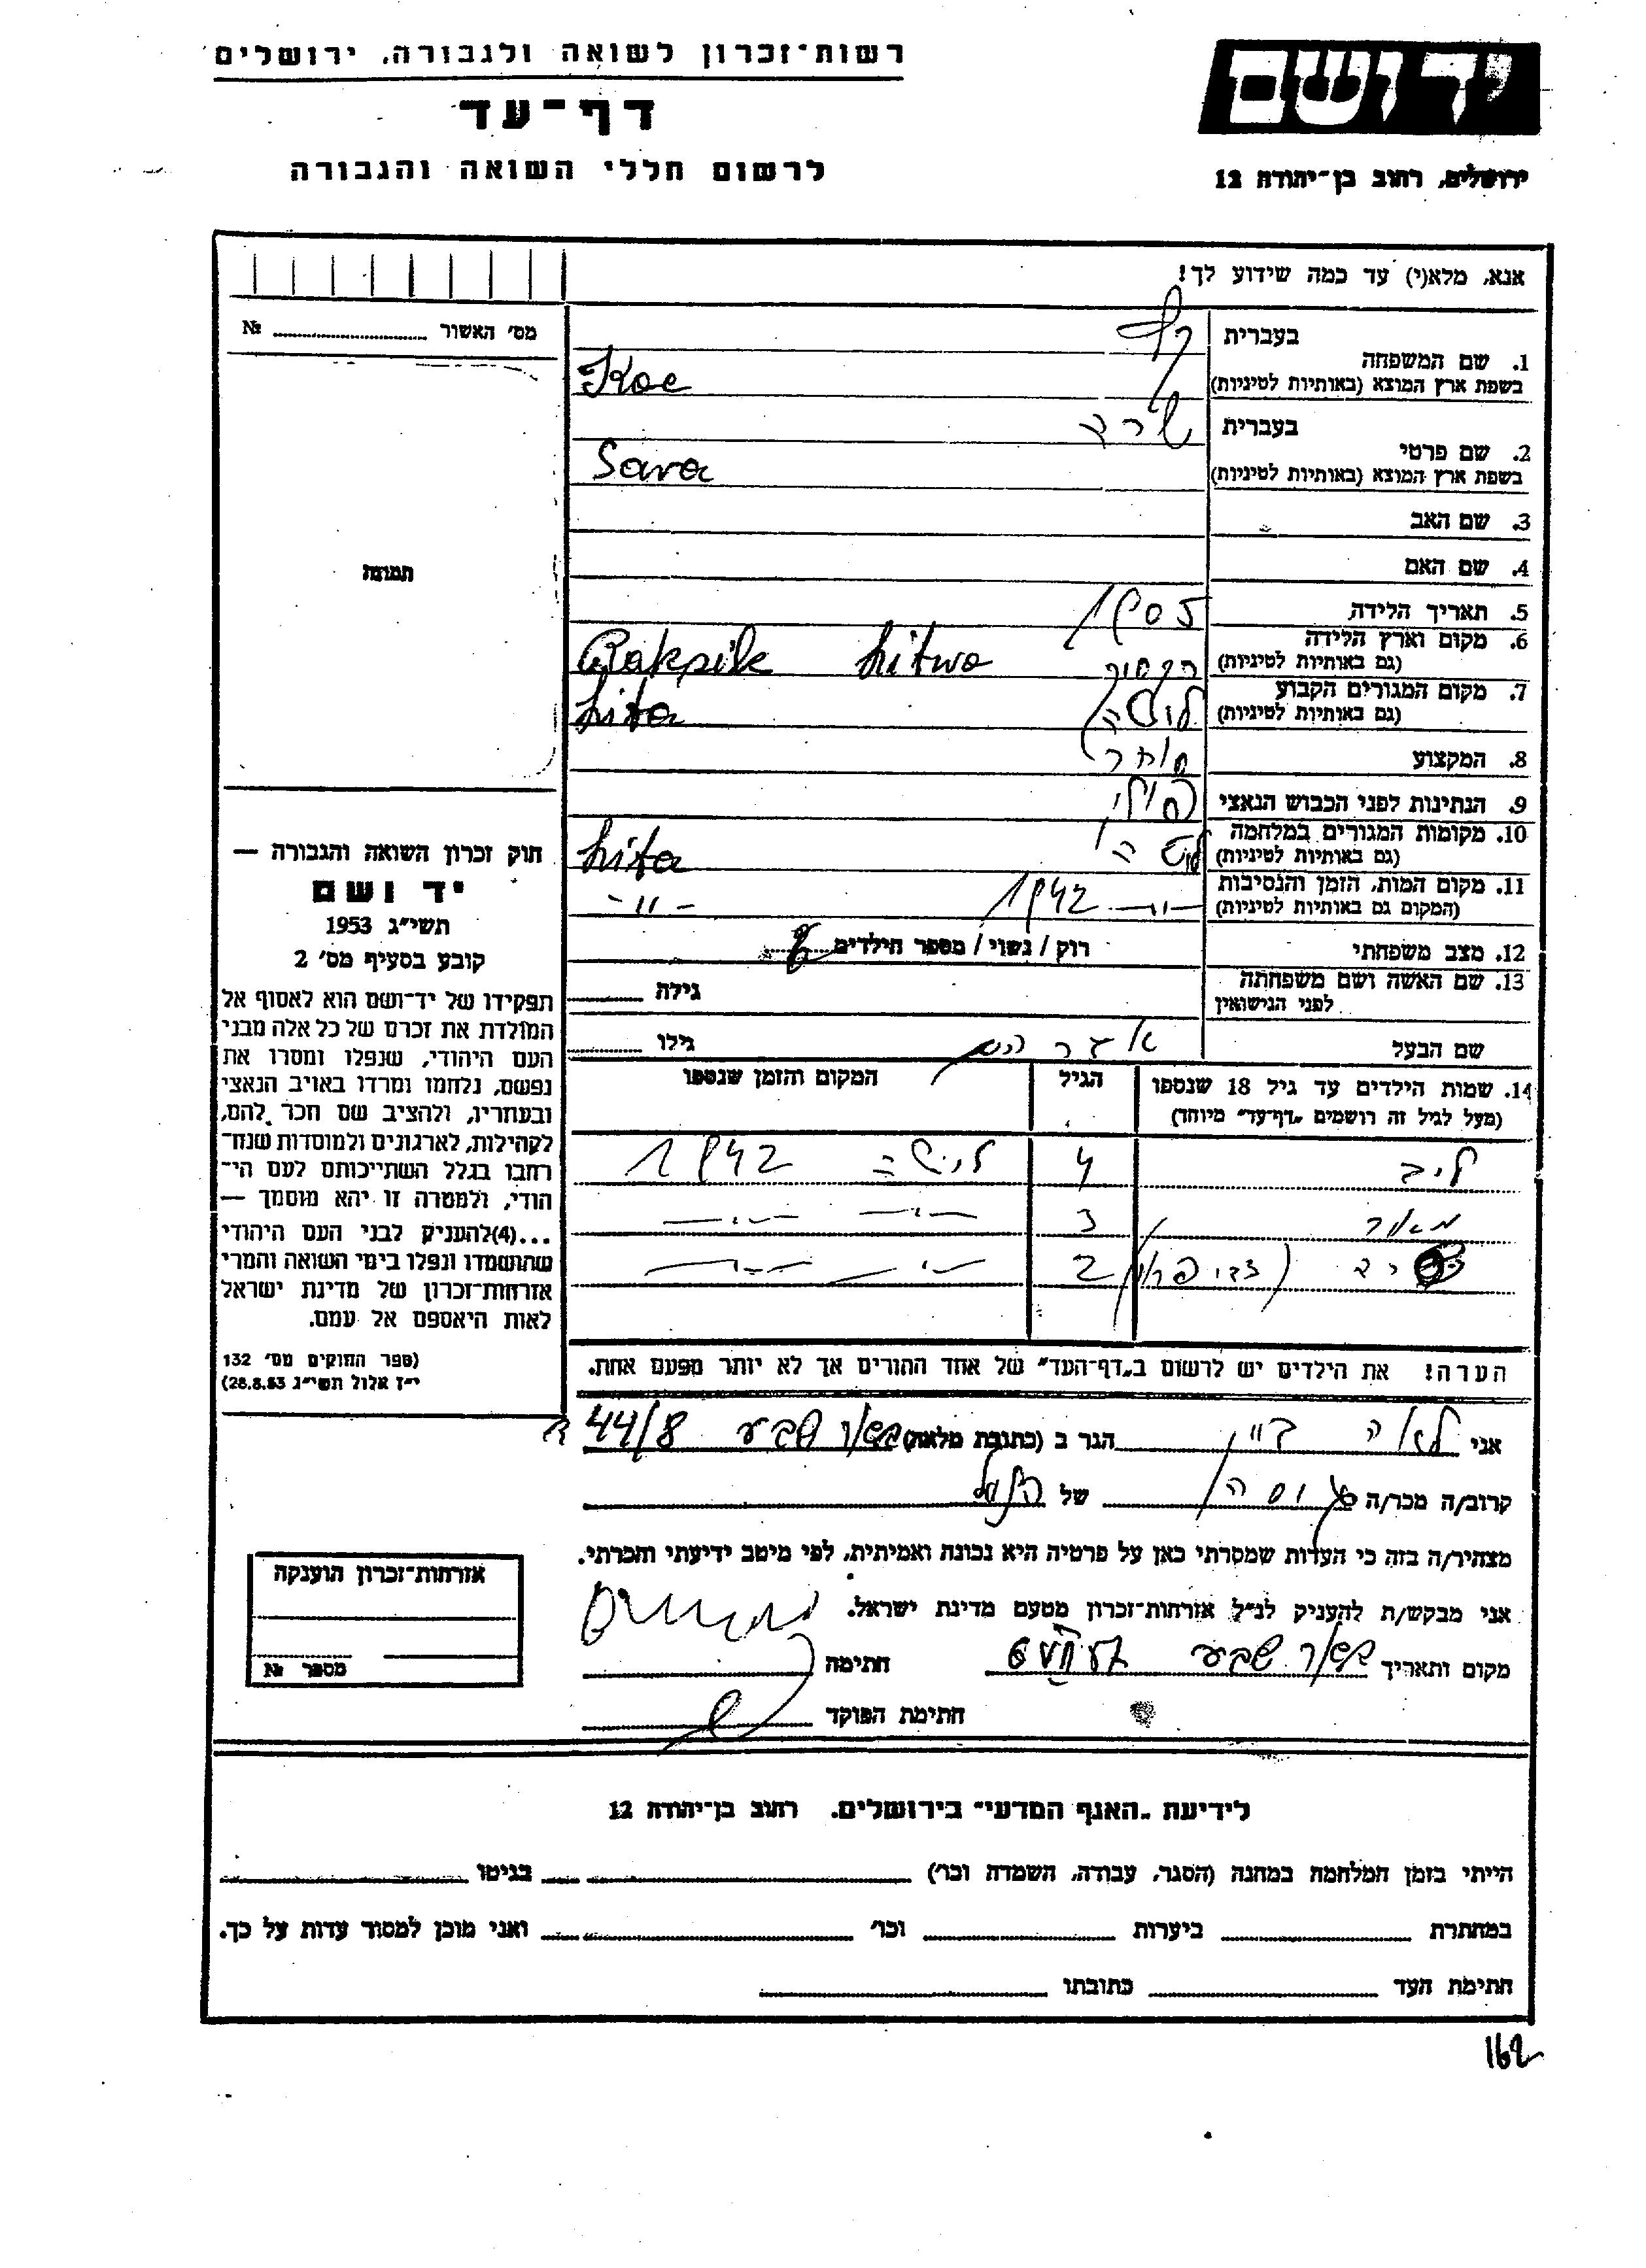 רשות-זכרון לשואה ולגבורה, ירושלים
דף-עד
לרשום חללי השואה והגבורה
ידושם
ירושלים, רחוב בן-יהודה 12
אנא, מלא(י) עד כמה שידוע לך!
מס' האשור № 
תמונה
1. שם המשפחה בעברית
בשפת ארץ המוצא (באותיות לטיניות) Koc
2. שם פרטי בעברית שרה
בשפת ארץ המוצא (באותיות לטיניות) Sara
3. שם האב
4. שם האם
5. תאריך הלידה 1905
6. מקום וארץ הלידה
(גם באותיות לטיניות) Litwa
7. מקום המגורים הקבוע
(גם באותיות לטיניות) Lita
8. המקצוע סוחר
9. הנתינות לפני הכבוש הנאצי
10. מקומות המגורים במלחמה
(גם באותיות לטיניות) Lita
11. מקום המות, הזמן והנסיבות 1942 -"-
(המקום גם באותיות לטיניות) -"-
12. מצב משפחתי רוק / נשוי / מספר הילדים
13. שם האשה ושם משפחתה גילה
לפני הנישואין
שם הבעל גילו
14. שמות הילדים עד גיל 18 שנספו הגיל המקום והזמן שנספו
(מעל לגיל זה רושמים "דף-עד" מיוחד)
4 ליטה 1942
3 -"- -"-
2 -"- -"-
הערה! את הילדים יש לרשום ב"דף-העד" של אחד ההורים אך לא יותר מפעם אחת.
חוק זכרון השואה והגבורה —
יד ושם
תשי"ג 1953
קובע בסעיף מס' 2
תפקידו של יד-ושם הוא לאסוף אל
המולדת את זכרם של כל אלה מבני
העם היהודי, שנפלו ומסרו את
נפשם, נלחמו ומרדו באויב הנאצי
ובעוזריו, ולהציב שם וזכר להם,
לקהילות, לארגונים ולמוסדות שנח-
רבו בגלל השתייכותם לעם הי-
הודי, ולמטרה זו יהא מוסמך —
...(4)להעניק לבני העם היהודי
שהושמדו ונפלו בימי השואה והמרי
אזרחות-זכרון של מדינת ישראל
לאות היאספם אל עמם.
(ספר החוקים מס' 132
י"ז אלול תשי"ג 28.8.53)
אני לאה הגר ב (כתובת מלאה) באר שבע 44/8
קרוב/ה מכר/ה של
מצהיר/ה בזה כי העדות שמסרתי כאן על פרטיה היא נכונה ואמיתית, לפי מיטב ידיעתי והכרתי.
אני מבקש/ת להעניק לנ"ל אזרחות-זכרון מטעם מדינת ישראל.
מקום ותאריך באר שבע חתימה
חתימת הפוקד
אזרחות-זכרון הוענקה
מספר №
לידיעת "האגף המדעי" בירושלים. רחוב בן-יהודה 12
הייתי בזמן המלחמה במחנה (הסגר, עבודה, השמדה וכו') בגיטו
במחתרת ביערות וכו' ואני מוכן למסור עדות על כך.
חתימת העד כתובתו
162